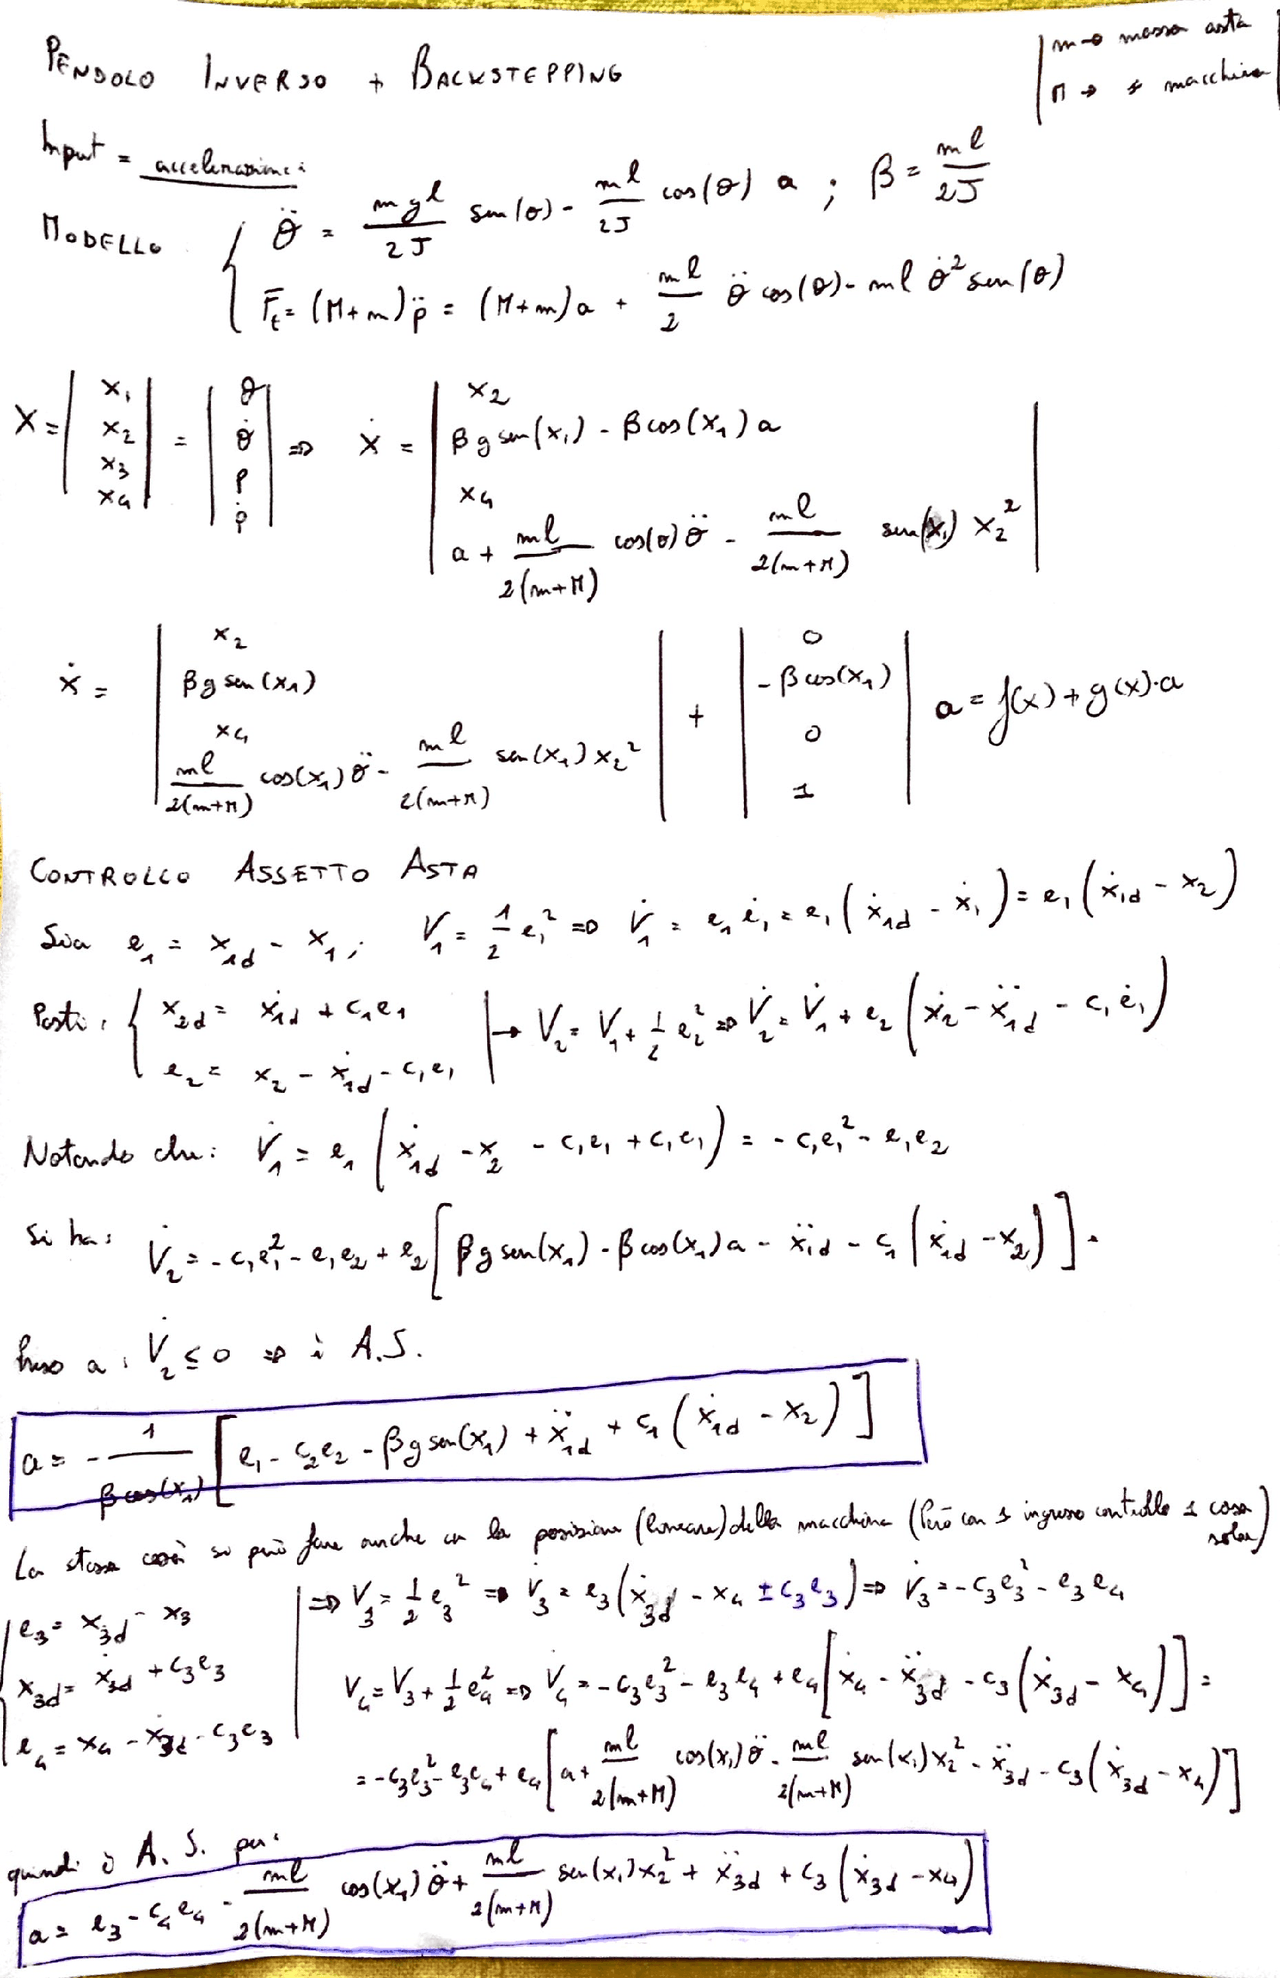 PENDOLO INVERSO + BACKSTEPPING
m → massa asta
M → s macchina
Input = accelerazione:
MODELLO { θ̈ = mgl/2J sen(θ) - ml/2J cos(θ) a ; β = ml/2J
F_t = (M+m)p̈ = (M+m)a + ml/2 θ̈ cos(θ) - ml θ̇² sen(θ)
X = |x₁ x₂ x₃ x₄| = |θ θ̇ p ṗ| ⇒ ẋ = | x₂
βg sen(x₁) - β cos(x₁) a
x₄
a + ml/2(m+M) cos(θ) θ̈ - ml/2(m+M) sen(x₁) x₂² |
ẋ = | x₂
βg sen(x₁)
x₄
ml/2(m+M) cos(x₁) θ̈ - ml/2(m+M) sen(x₁) x₂² | + | 0
-β cos(x₁)
0
1 | a = f(x) + g(x)·a
CONTROLLO ASSETTO ASTA
Sia e₁ = x₁d - x₁; V₁ = 1/2 e₁² ⇒ V̇₁ = e₁ ė₁ = e₁(ẋ₁d - ẋ₁) = e₁(ẋ₁d - x₂)
Posti: { x₂d = ẋ₁d + c₁e₁
e₂ = x₂ - ẋ₁d - c₁e₁ | → V₂ = V₁ + 1/2 e₂² ⇒ V̇₂ = V̇₁ + e₂(ẋ₂ - ẍ₁d - c₁ė₁)
Notando che: V̇₁ = e₁(ẋ₁d - x₂ - c₁e₁ + c₁e₁) = -c₁e₁² - e₁e₂
Si ha: V̇₂ = -c₁e₁² - e₁e₂ + e₂[βg sen(x₁) - β cos(x₁)a - ẍ₁d - c₁(ẋ₁d - x₂)].
Preso a: V̇₂ ≤ 0 ⇒ è A.S.
a = - 1/β cos(x₁) [e₁ - c₂e₂ - βg sen(x₁) + ẍ₁d + c₁(ẋ₁d - x₂)]
La stessa cosa si può fare anche con la posizione (lineare) della macchina (Però con 1 ingresso controllo 1 cosa sola)
{ e₃ = x₃d - x₃
x₃d = ẋ₃d + c₃e₃
e₄ = x₄ - ẋ₃d - c₃e₃
⇒ V₃ = 1/2 e₃² ⇒ V̇₃ = e₃(ẋ₃d - x₄ ± c₃e₃) ⇒ V̇₃ = -c₃e₃² - e₃e₄
V₄ = V₃ + 1/2 e₄² ⇒ V̇₄ = -c₃e₃² - e₃e₄ + e₄[ẋ₄ - ẍ₃d - c₃(ẋ₃d - x₄)] =
= -c₃e₃² - e₃e₄ + e₄[a + ml/2(m+M) cos(x₁) θ̈ - ml/2(m+M) sen(x₁) x₂² - ẍ₃d - c₃(ẋ₃d - x₄)]
quindi è A.S. per:
a = e₃ - c₄e₄ - ml/2(m+M) cos(x₁) θ̈ + ml/2(m+M) sen(x₁) x₂² + ẍ₃d + c₃(ẋ₃d - x₄)